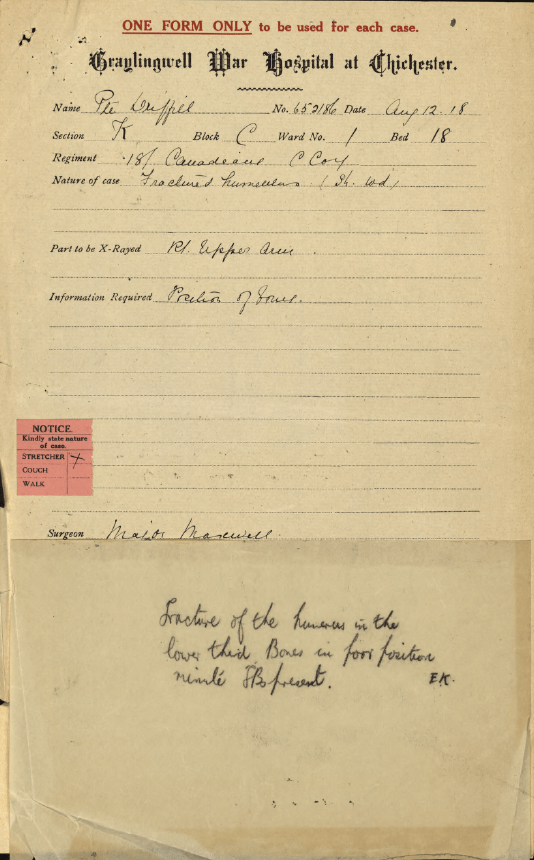 ONE FORM ONLY to be used for each case.
Graylingwell War Hospital at Chichester.
Name Pte Driffill No. 652186 Date Aug 12. 18
Section K Block C Ward No. 1 Bed 18
Regiment 18/ Canadians C Coy
Nature of case Fractured humerus (Sh. Wd)
Part to be X-Rayed Rt. Upper Arm.
Information Required Position of bones.
NOTICE.
Kindly state nature
of case.
STRETCHER +
COUCH
WALK
Surgeon Major Maxwell
Fracture of the humerus in the
lower third Bones in poor position
FB present. EK.